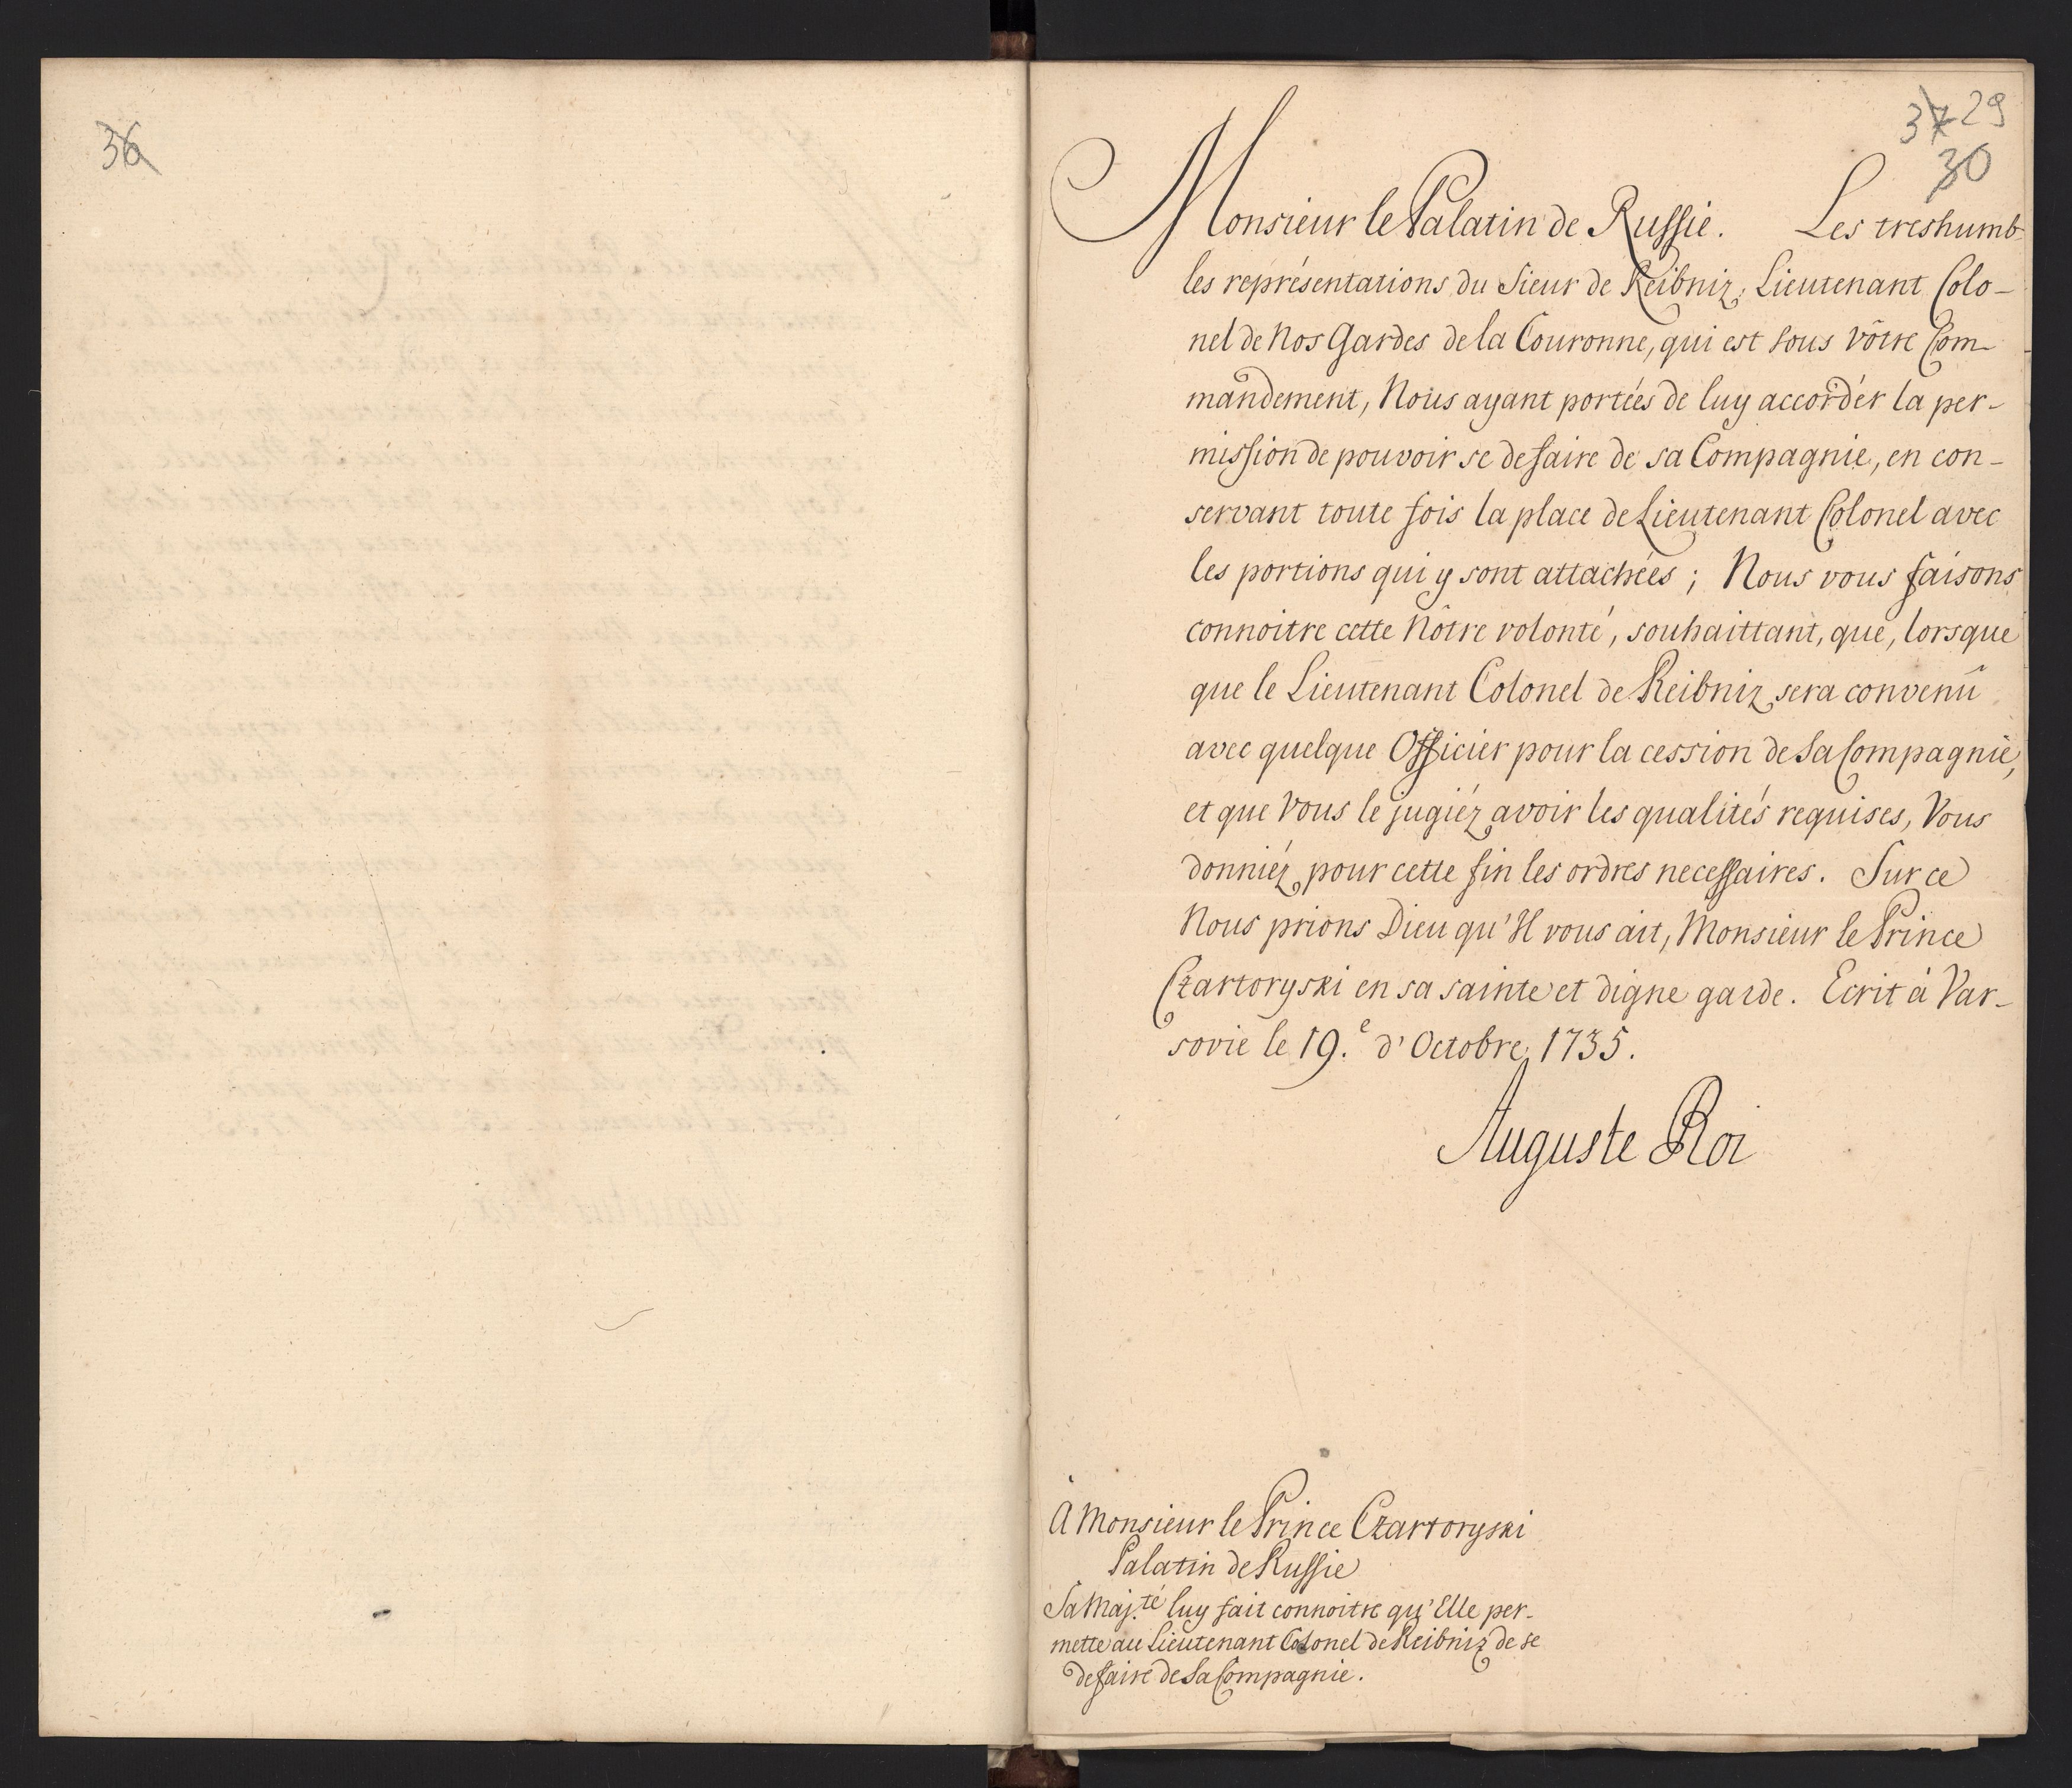 36
37 29
30
Monsieur le Palatin de Russie. Les treshumb-
les représentations du Sieur de Reibniz, Lieutenant Colo-
nel de Nos Gardes de la Couronne, qui est sous Vôtre Com-
mandement, Nous ayant portées de luy accordér la per-
mission de pouvoir se defaire de sa Compagnie, en con-
servant toute fois la place de Lieutenant Colonel avec
les portions qui y sont attachées; Nous vous faisons
connoitre cette Nôtre volonté, souhaittant, que, lorsque
que le Lieutenant Colonel de Reibniz sera convenû
avec quelque Officier pour la cession de Sa Compagnie,
et que Vous le jugiéz avoir les qualités requises, Vous
donniéz pour cette fin les ordres necessaires. Sur ce
Nous prions Dieu qu'Il vous ait, Monsieur le Prince
Czartoryski en sa sainte et digne garde. Ecrit à Var-
sovie le 19.e d'Octobre 1735.
Auguste Roi
À Monsieur le Prince Czartoryski
Palatin de Russie
Sa Maj.té luy fait connoitre qu'Elle per-
mette au Lieutenant Colonel de Reibniz de se
defaire de Sa Compagnie.